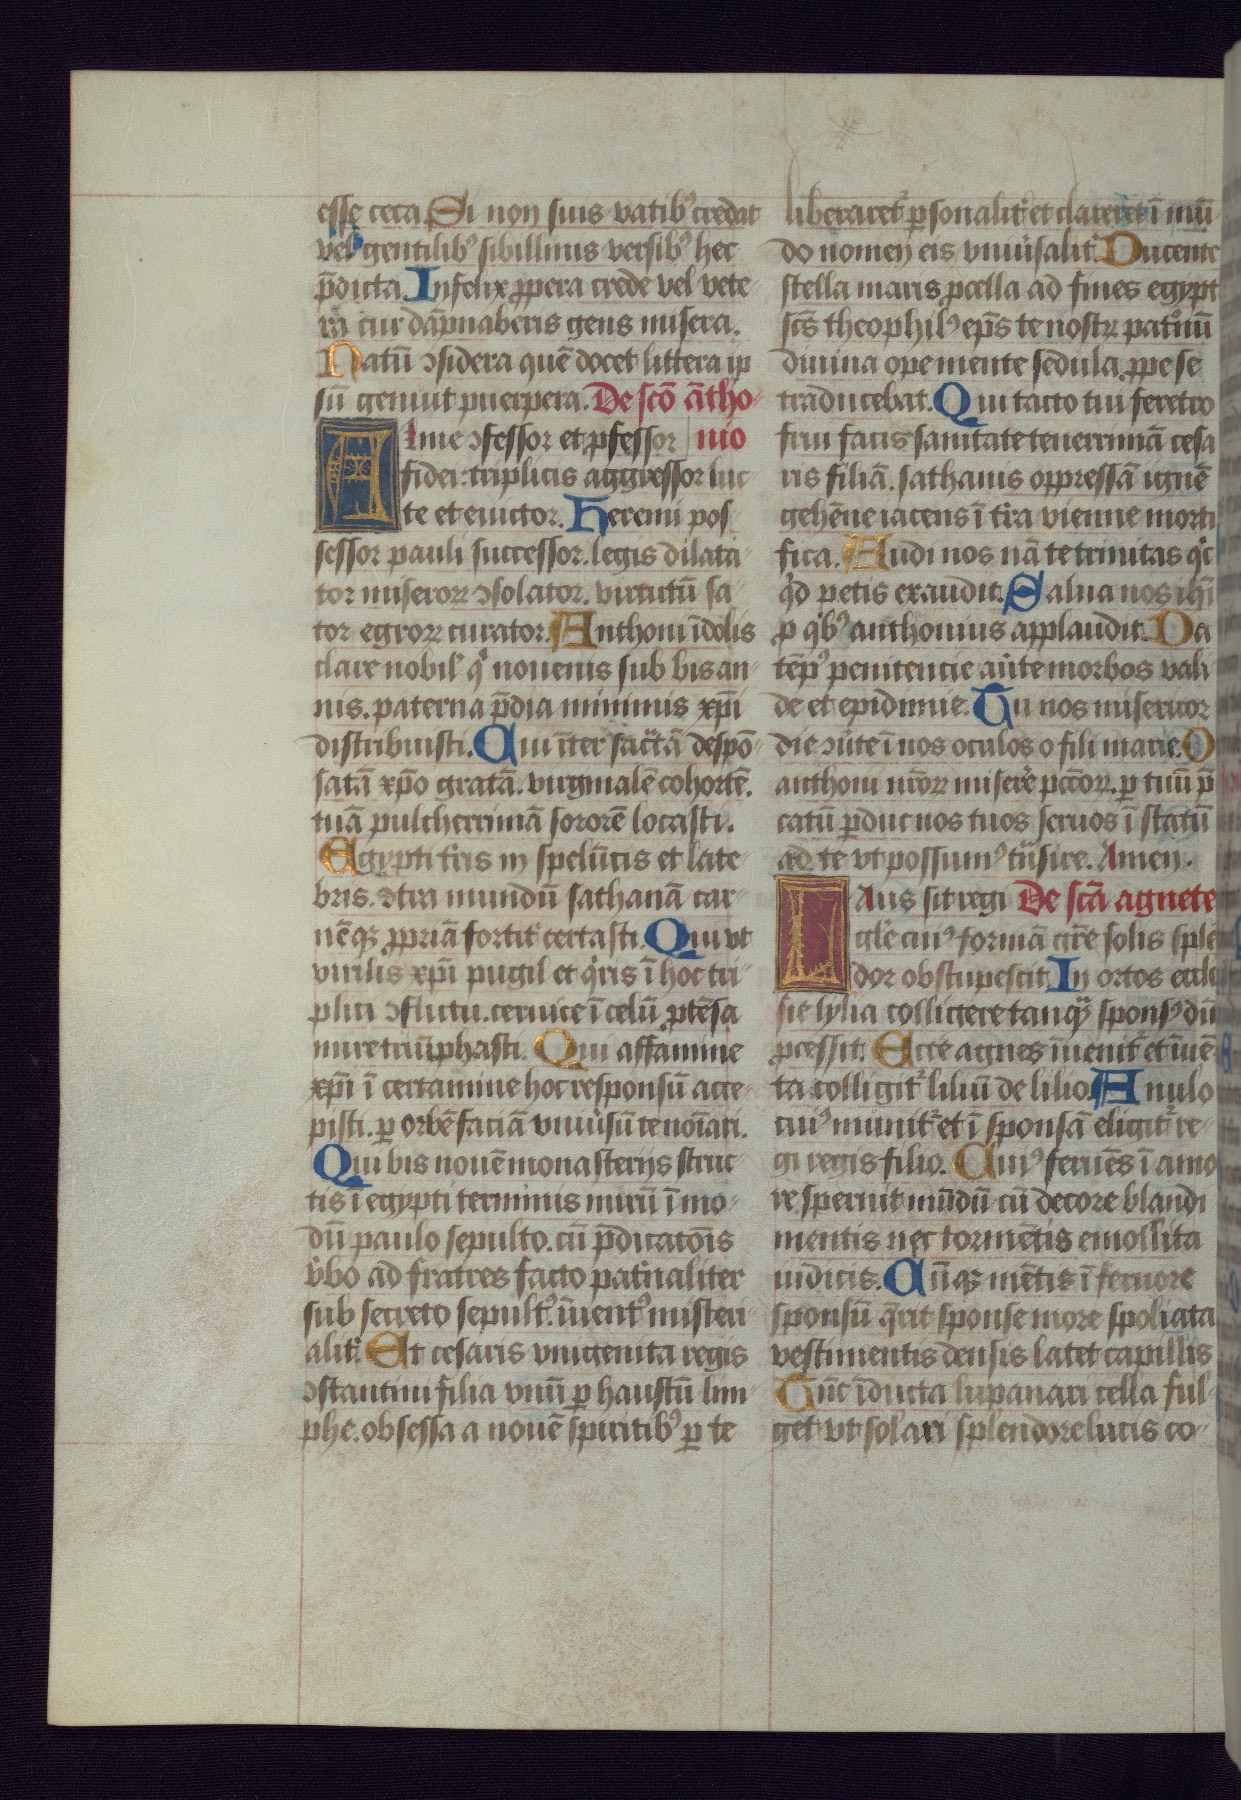 esse ceca. Si non suis vatibꝰ credat
vel gentilibꝰ sibillinis versibꝰ hec
p̄dicta. Infelix ꝓpera crede vel vete-
ra cur dāpnaberis gens misera.
Natū ꝯsidera quē docet littera ip
sū genuit puerpera. De scō ātho-
Alme ꝯfessor et ꝓfessor nio
fidei: triplicis aggressor luc
te et euictor. Heremi pos
sessor pauli successor. legis dilata-
tor miseroꝝ ꝯsolator. virtutū sa
tor egroꝝ curator. Anthoni īdolis
clare nobilꝭ q̄ nouenis sub bis an-
nis. paterna p̄dia minimis xp̄i
distribuisti. Qui īter sacͣtā despō-
satā xp̄o gratā. virginalē cohortē.
tuā pulcherrimā sororē locasti.
Egypti tͥris in spelūcis et late
bris. ꝯtra mundū sathanā car-
nēqꝫ ꝓpriā fortit̛ certasti. Qui vt
virilis xp̄i pugil et q̄ris ī hoc tri
plici ꝯflictu. ceruice ī celū ꝓtēsa
mire triūphasti. Qui affamine
xp̄i ī certamine hoc responsū acce
pisti. ꝑ orbē faciā vniưsū te noīari.
Qui bis nouē monasterijs struc-
tis ī egypti terminis mirū ī mo-
dū paulo sepulto. cū p̄dicatōis
v̛bo ad fratres facto pat̛naliter
sub secreto sepultꝰ. īuentꝰ misteri
alit̛. Et cesaris vnigenita regis
ꝯstantini filia vnū ꝑ haustū lim
phe. obsessa a nouē spiritibꝰ ꝑ te
liberaret᷑ ꝑsonalit̛ et clareret ī mū
do nomen eis vniưsalit̛. Ducente
stella maris ꝓcella ad fines egypt
scs̄ theophilꝰ ep̄s te nostꝝ pat̛nū
diuina ope mente sedula. ꝓpe se
traducebat. Qui tacto tui feretro
frui facis sanitate tenerrimā cesa
ris filiā. sathanis oppressā ignē
gehēne iacens ī tr̛a vienne morti
fica. Audi nos nā te trinitas qͥc
qͥd petis exaudit. Salua nos ihū
ꝓ qͥbꝰ anthonius applaudit. Da
tēpꝰ penitencie aưte morbos vali
de et epidimie. Tu nos misericor
die ꝯưte ī nos oculos o fili marie. O
anthoni nr̄oꝝ miserēe pccōꝝ. ꝑ tuū p̄
catū ꝑduc nos tuos seruos ī statū
ad te vt possumꝰ trāsire. Amen.
Laus sit regi De scā agnete
gl̄e ciuꝰ formā
dor obstupescit. In ortos eccle
sie lylia colligere tanqͣꝫ sponsꝰ dū
ꝓcessit. Ecce agnes īuenit᷑ et īuē
ta colligit᷑ liliū de lilio. Anulo
ciuꝰ munit᷑ et ī sponsā eligit᷑ re-
gi regis filio. Cuiꝰ feruēs ī amo
re spernit mūdū cū decore blandi
mentis nec tormētis emollita
iudicis. Cūqꝫ mētis ī feruore
sponsū q̄rit sponse more spoliata
vestimentis densis latet capillis
Tūc īducta lupanari cella ful-
get vt solari splendore lucis co-